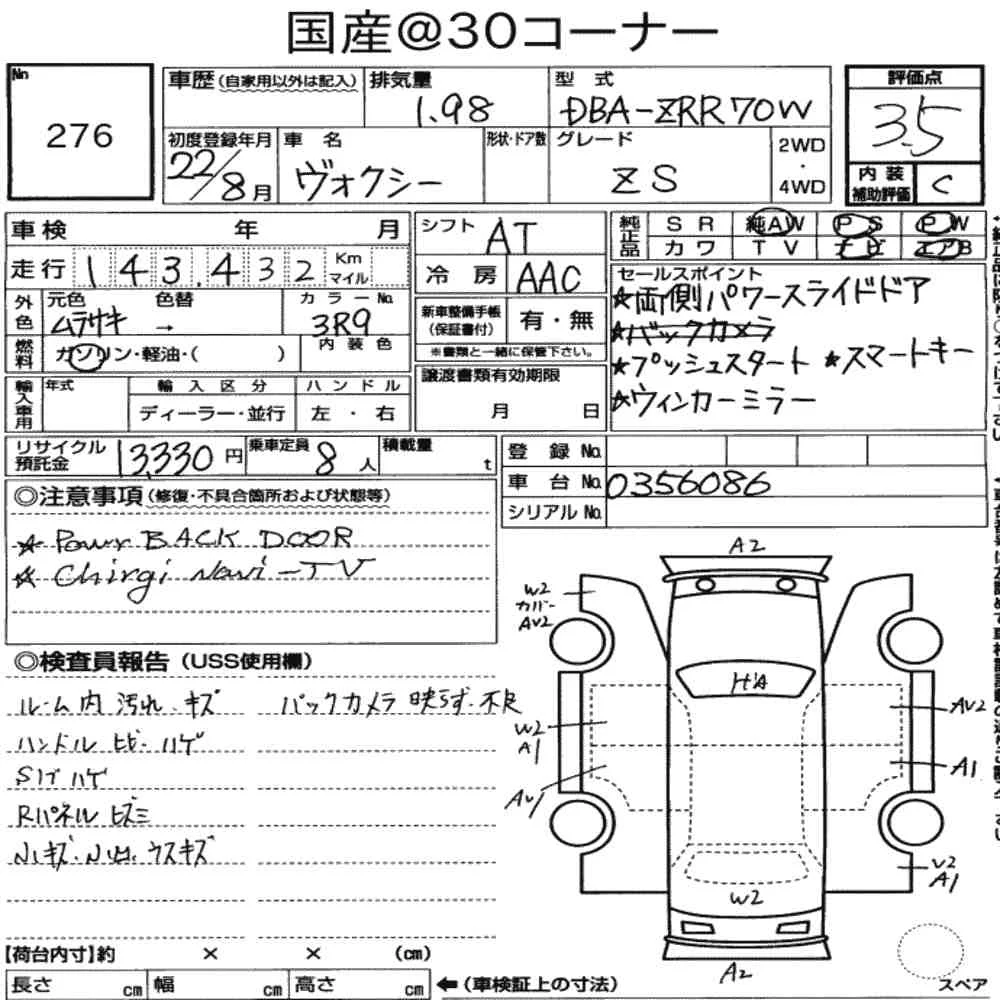 国産@30コーナー
No
276
車歴(自家用以外は記入)
排気量
1.98
型 式
DBA-ZRR70W
評価点
3.5
初度登録年月
22/8月
車 名
ヴォクシー
形状・ドア数
グレード
ZS
2WD
・
4WD
内装
補助評価
C
車検 年 月
シフト
AT
純正品
SR 純AW PS PW
カワ TV ナビ エアB
走行 143,432 Km
マイル
冷房
AAC
セールスポイント
★両側パワースライドドア
★バックカメラ
★プッシュスタート ★スマートキー
★ウィンカーミラー
外色
元色 色替 カラーNo.
ムラサキ → 3R9
新車整備手帳
(保証書付)
有・無
※書類と一緒に保管下さい。
燃料
ガソリン・軽油・( )
内装色
譲渡書類有効期限
月 日
輸入車用
年式
輸入区分
ハンドル
ディーラー・並行
左 ・ 右
リサイクル
預託金
13,330円
乗車定員
8人
積載量
t
登録No.
車台No.
0356086
シリアルNo.
◎注意事項(修復・不具合箇所および状態等)
★ Power BACK DOOR
★ Chirgi Navi-TV
◎検査員報告(USS使用欄)
ルーム内 汚れ.キズ
バックカメラ 映らず.不良
ハンドル ヒビ.ハゲ
Sノブ ハゲ
Rパネル ヒズミ
A2
W2
カバー
AV2
H'A
W2
A1
AV2
AV1
A1
V2
A1
W2
A2
スペア
【荷台内寸】約 × × (cm)
長さ cm 幅 cm 高さ cm
←(車検証上の寸法)